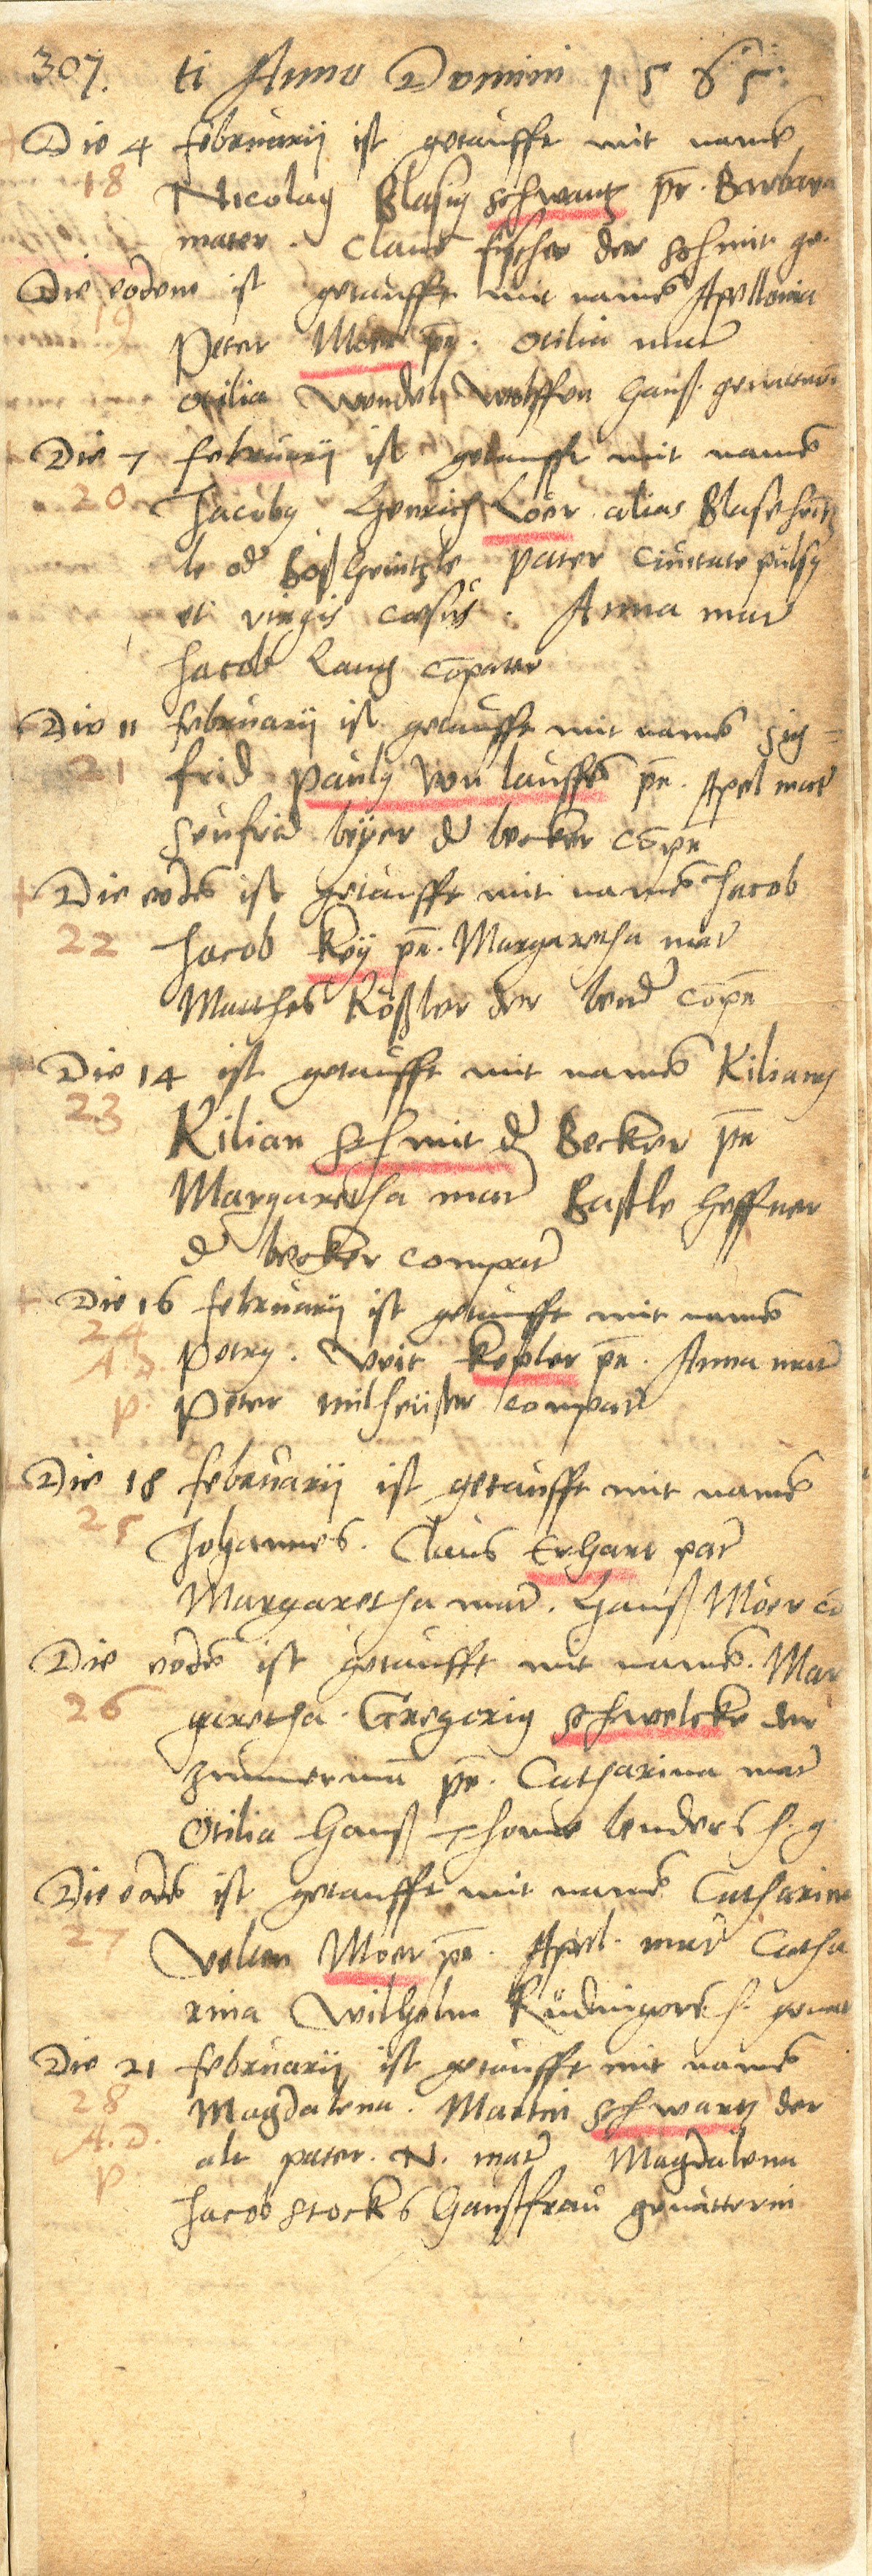 307. ti Anno Domini 1565
Die 4 februarij ist getaufft mit name
18 Nicolaus Blasius schwartz pr. Barbara
mater. Claus fischer der schmit ge.
Die eodem ist getaufft mit name Apollonia
19 Peter Moer pr. Otilia mater
Otilia Wendel Wolffen hauß. gevatterin
Die 7 februarij ist getaufft mit name
20 Jacobus Henrich Loer alias Blasehein
le od Boßheintzle pater Civitate pulsus
et virgis cæsus. Anna mater
Jacob Lang cōpater
Die 11 februarij ist getaufft mit name Sig=
21 frid Paulus von lauffe pr. Apel mater
Seufrid beyer d becker cōpr
Die eode ist getaufft mit name Jacob
22 Jacob Key pr. Margaretha mater
Matthes Rößler der bend cōpr
Die 14 ist getaufft mit name Kilianus
23 Kilian schmit d Becker pr
Margaretha mater Bastle heffner
d becker compater
Die 16 februarij ist getaufft mit name
24 Petrus. Veit kepler pr. Anna mater
A. D. P. Peter milheuser compater
Die 18 februarij ist getaufft mit name
25 Johannes. Claus Erhart pater
Margaretha mater. Hanß Moer co
Die eode ist getaufft mit name. Mar
26 garetha. Gregorius schwelcke der
zimmerma pr. Catharina mater
Otilia Hanß Thome benders h. g
Die eode ist getaufft mit name Catharina
27 Velten Moer pr. Apel. mater Catha
rina Wilhelm Rüdingers h. gevat
Die 21 februarij ist getaufft mit name
28 Magdalena. Martin schwartz der
A. D. alt pater. N. mater Magdalena
P Jacob stocks haußfrau gevatterin